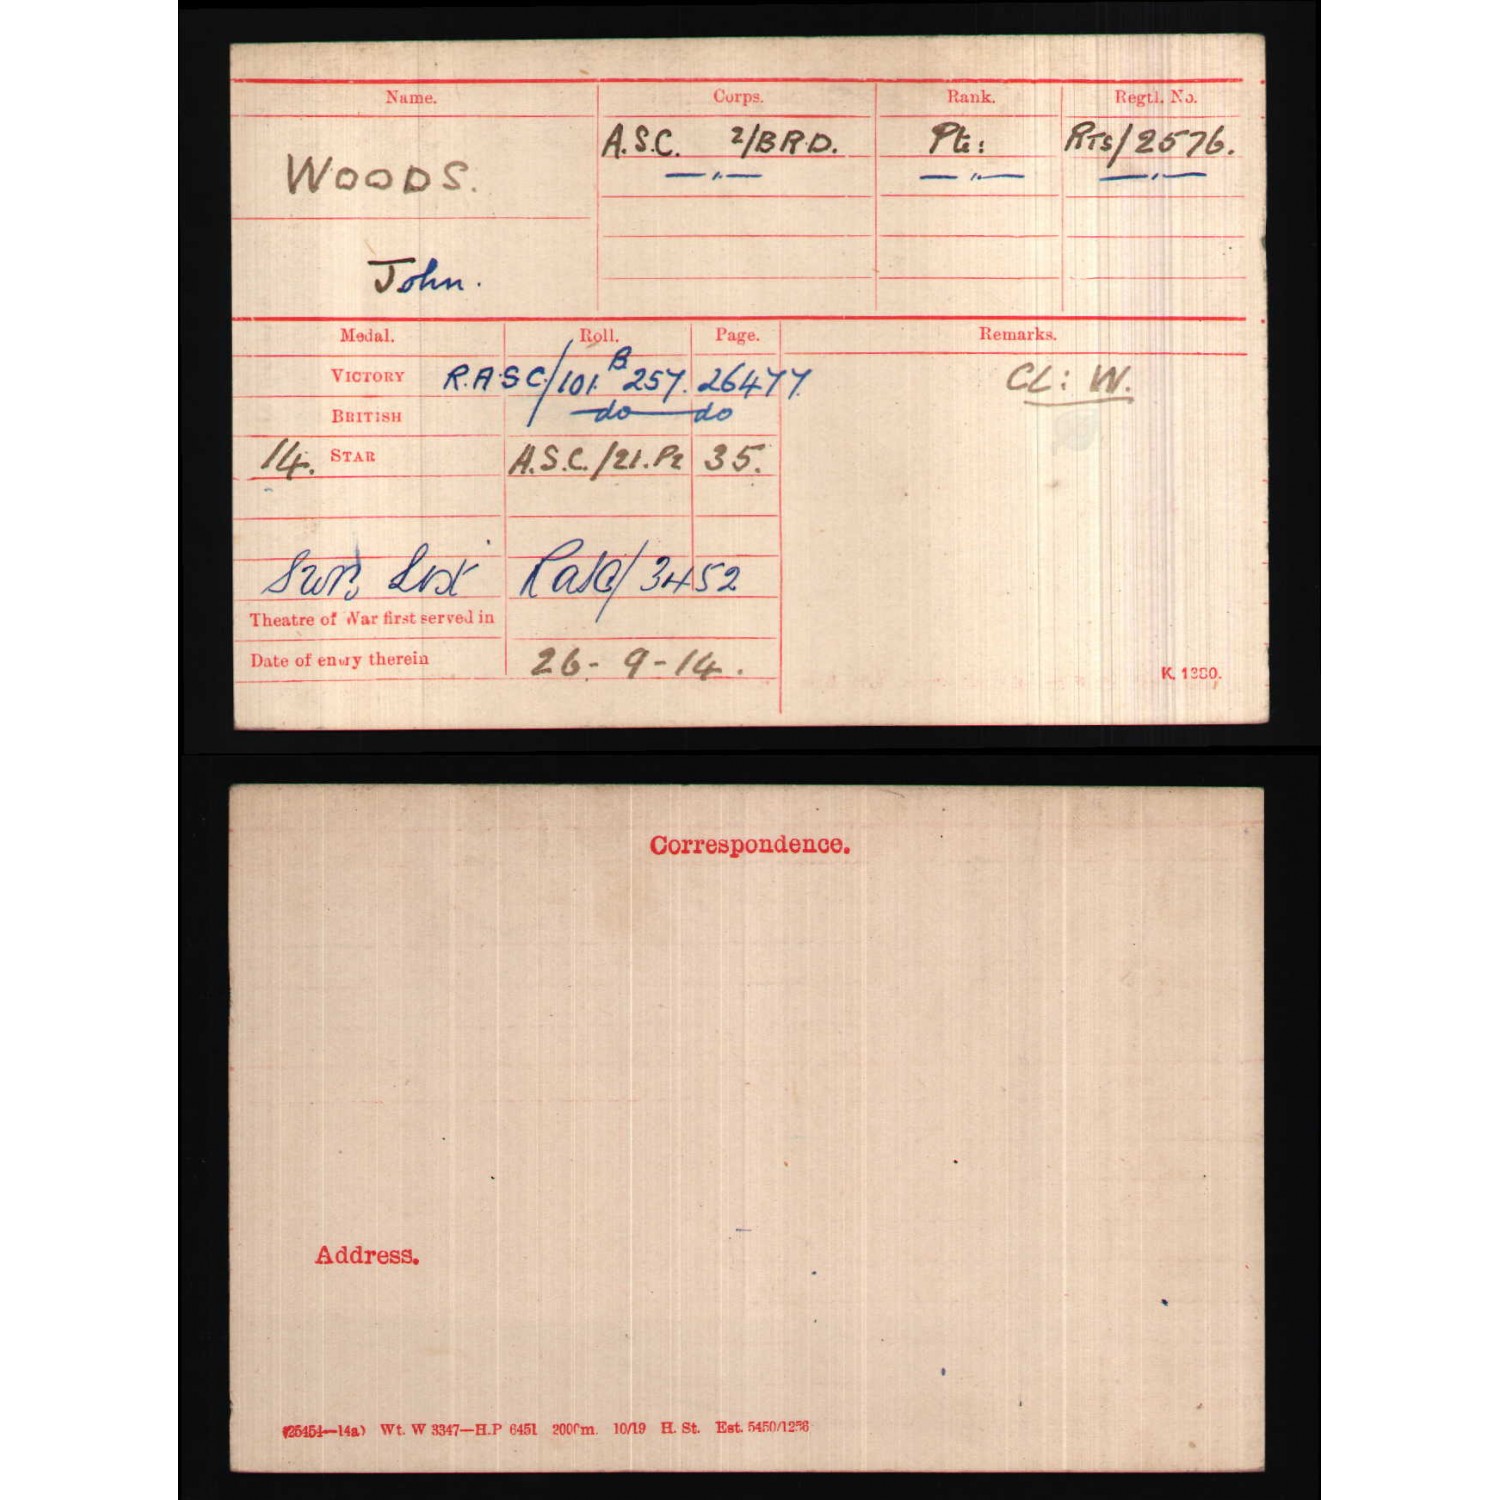 Name. Corps. Rank. Regtl. No.
A.S.C. 2/B.R.D. Pte: RTS/2576.
WOODS. —"— —"— —"—
John.
Medal. Roll. Page. Remarks.
VICTORY R.A.S.C./101 B 257. 26477 CL: W.
BRITISH do do
14. STAR A.S.C./21.P2 35.
RASC/3452
Theatre of War first served in
Date of entry therein 26-9-14.
K. 1380.
Correspondence.
Address.
(25454—14a) Wt. W 3347—H.P 6451 2000m. 10/19 H. St. Est. 5450/1256